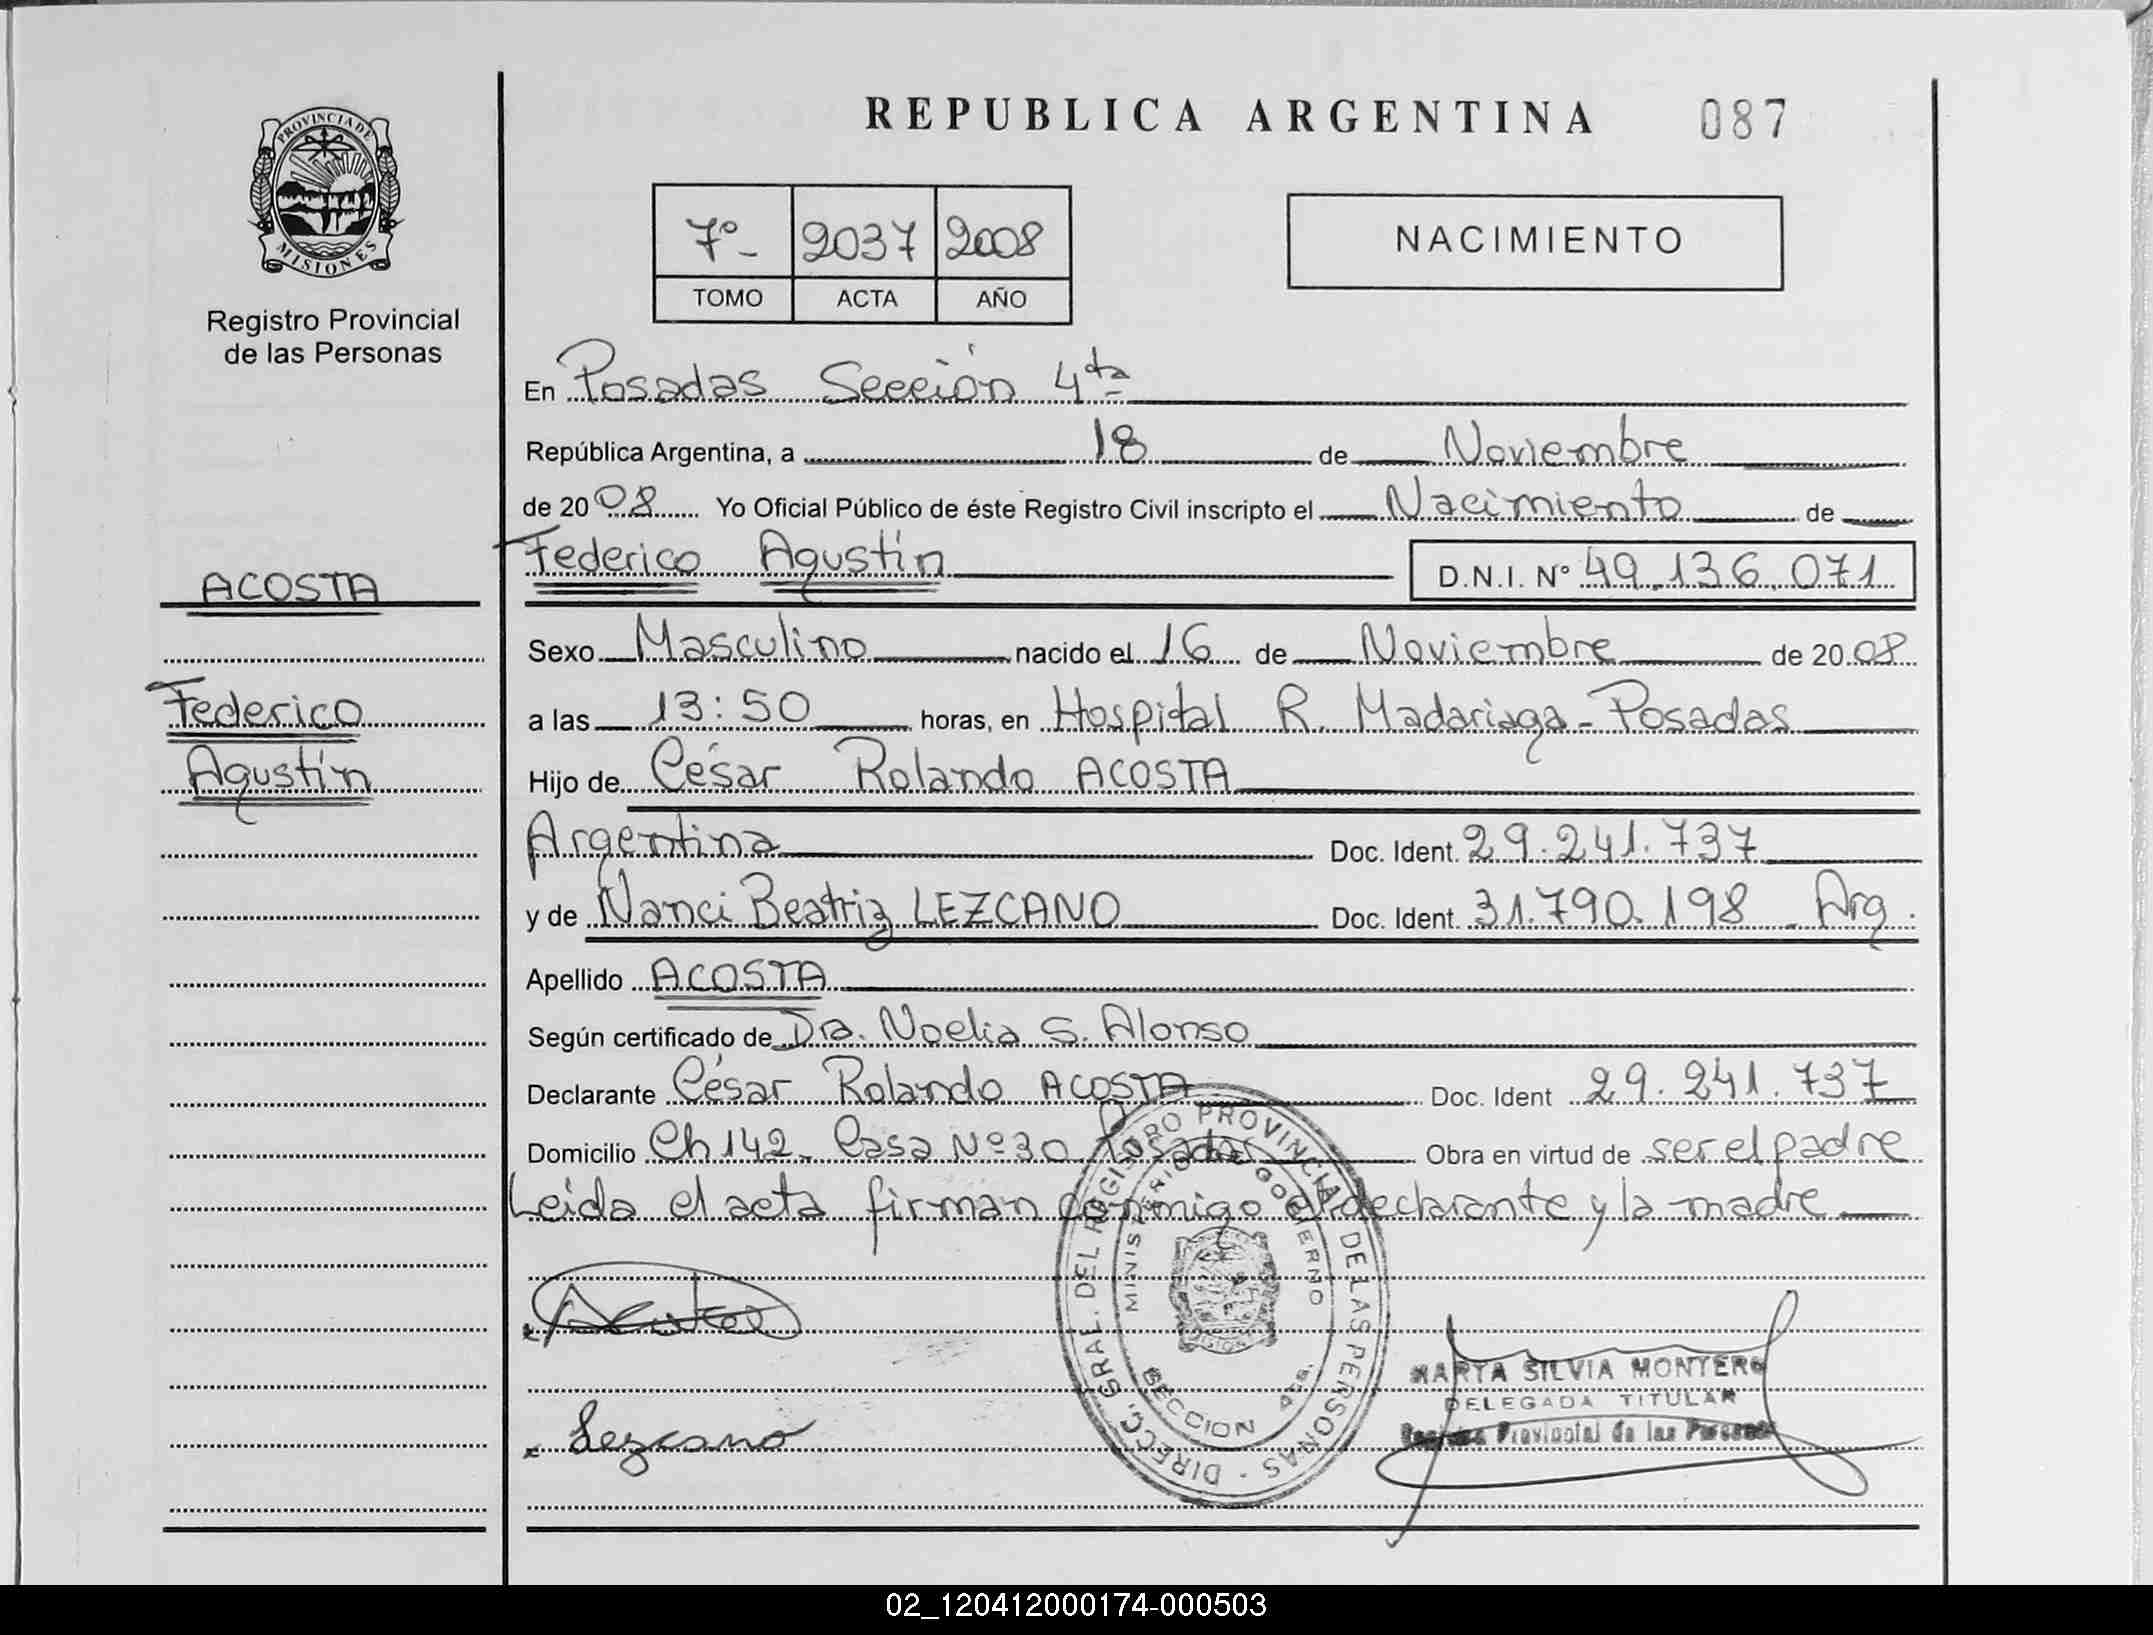 PROVINCIA DE
MISIONES
Registro Provincial
de las Personas
ACOSTA
Federico
Agustín
REPUBLICA ARGENTINA 087
7º- 2037 2008
TOMO ACTA AÑO
NACIMIENTO
En Posadas Sección 4ta
República Argentina, a 18 de Noviembre
de 2008 Yo Oficial Público de éste Registro Civil inscripto el Nacimiento de
Federico Agustín D.N.I. Nº 49.136.071
Sexo Masculino nacido el 16 de Noviembre de 2008
a las 13:50 horas, en Hospital R. Madariaga - Posadas
Hijo de César Rolando ACOSTA
Argentina Doc. Ident. 29.241.737
y de Nanci Beatriz LEZCANO Doc. Ident. 31.790.198 - Arg.
Apellido ACOSTA
Según certificado de Dra. Noelia S. Alonso
Declarante César Rolando ACOSTA Doc. Ident 29.241.737
Domicilio Ch 142 - Casa Nº 30 Posadas Obra en virtud de ser el padre
Leida el acta firman conmigo el declarante y la madre
DIRECC. GRAL. DEL REGISTRO PROVINCIAL DE LAS PERSONAS -
MINISTERIO GOBIERNO
SECCION 4ta.
Lezcano
MARTA SILVIA MONTERO
DELEGADA TITULAR
Registro Provincial de las Personas
02_120412000174-000503